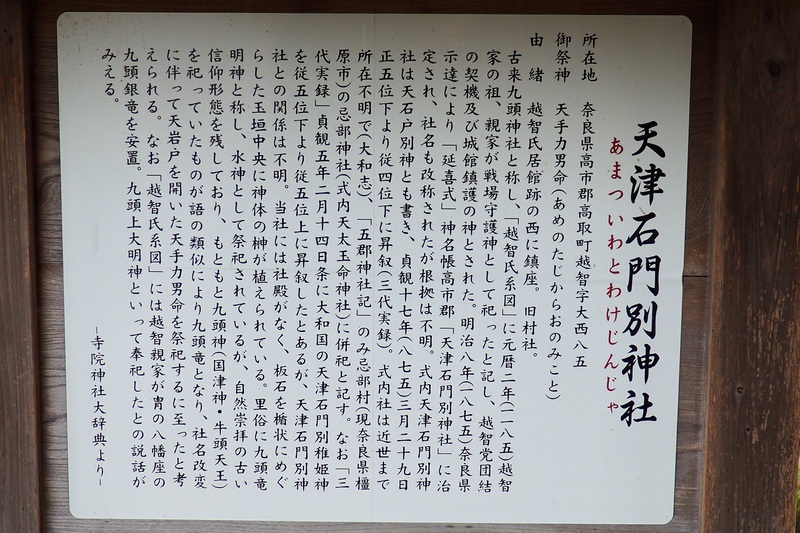 天津石門別神社
あまついわとわけじんじゃ
所在地　奈良県高市郡高取町越智字大西八五
御祭神　天手力男命(あめのたじからおのみこと)
由　緒　越智氏居館跡の西に鎮座。旧村社。
古来九頭神社と称し、「越智氏系図」に元暦二年(一一八五)越智
家の祖、親家が戦場守護神として祀ったと記し、越智党団結
の契機及び城館鎮護の神とされた。明治八年(一八七五)奈良県
示達により「延喜式」神名帳高市郡「天津石門別神社」に治
定され、社名も改称されたが根拠は不明。式内天津石門別神
社は天石戸別神とも書き、貞観十七年(八七五)三月二十九日
正五位下より従四位下に昇叙(三代実録)。式内社は近世まで
所在不明で(大和志)、「五郡神社記」のみ忌部村(現奈良県橿
原市)の忌部神社(式内天太玉命神社)に併祀と記す。なお「三
代実録」貞観五年二月十四日条に大和国の天津石門別稚姫神
を従五位下より従五位上に昇叙したとあるが、天津石門別神
社との関係は不明。当社には社殿がなく、板石を楯状にめぐ
らした玉垣中央に神体の榊が植えられている。里俗に九頭竜
明神と称し、水神として祭祀されているが、自然崇拝の古い
信仰形態を残しており、もともと九頭神(国津神・牛頭天王)
を祀っていたものが語の類似により九頭竜となり、社名改変
に伴って天岩戸を開いた天手力男命を祭祀するに至ったと考
えられる。なお「越智氏系図」には越智親家が冑の八幡座の
九頭銀竜を安置。九頭上大明神といって奉祀したとの説話が
みえる。
－寺院神社大辞典より－